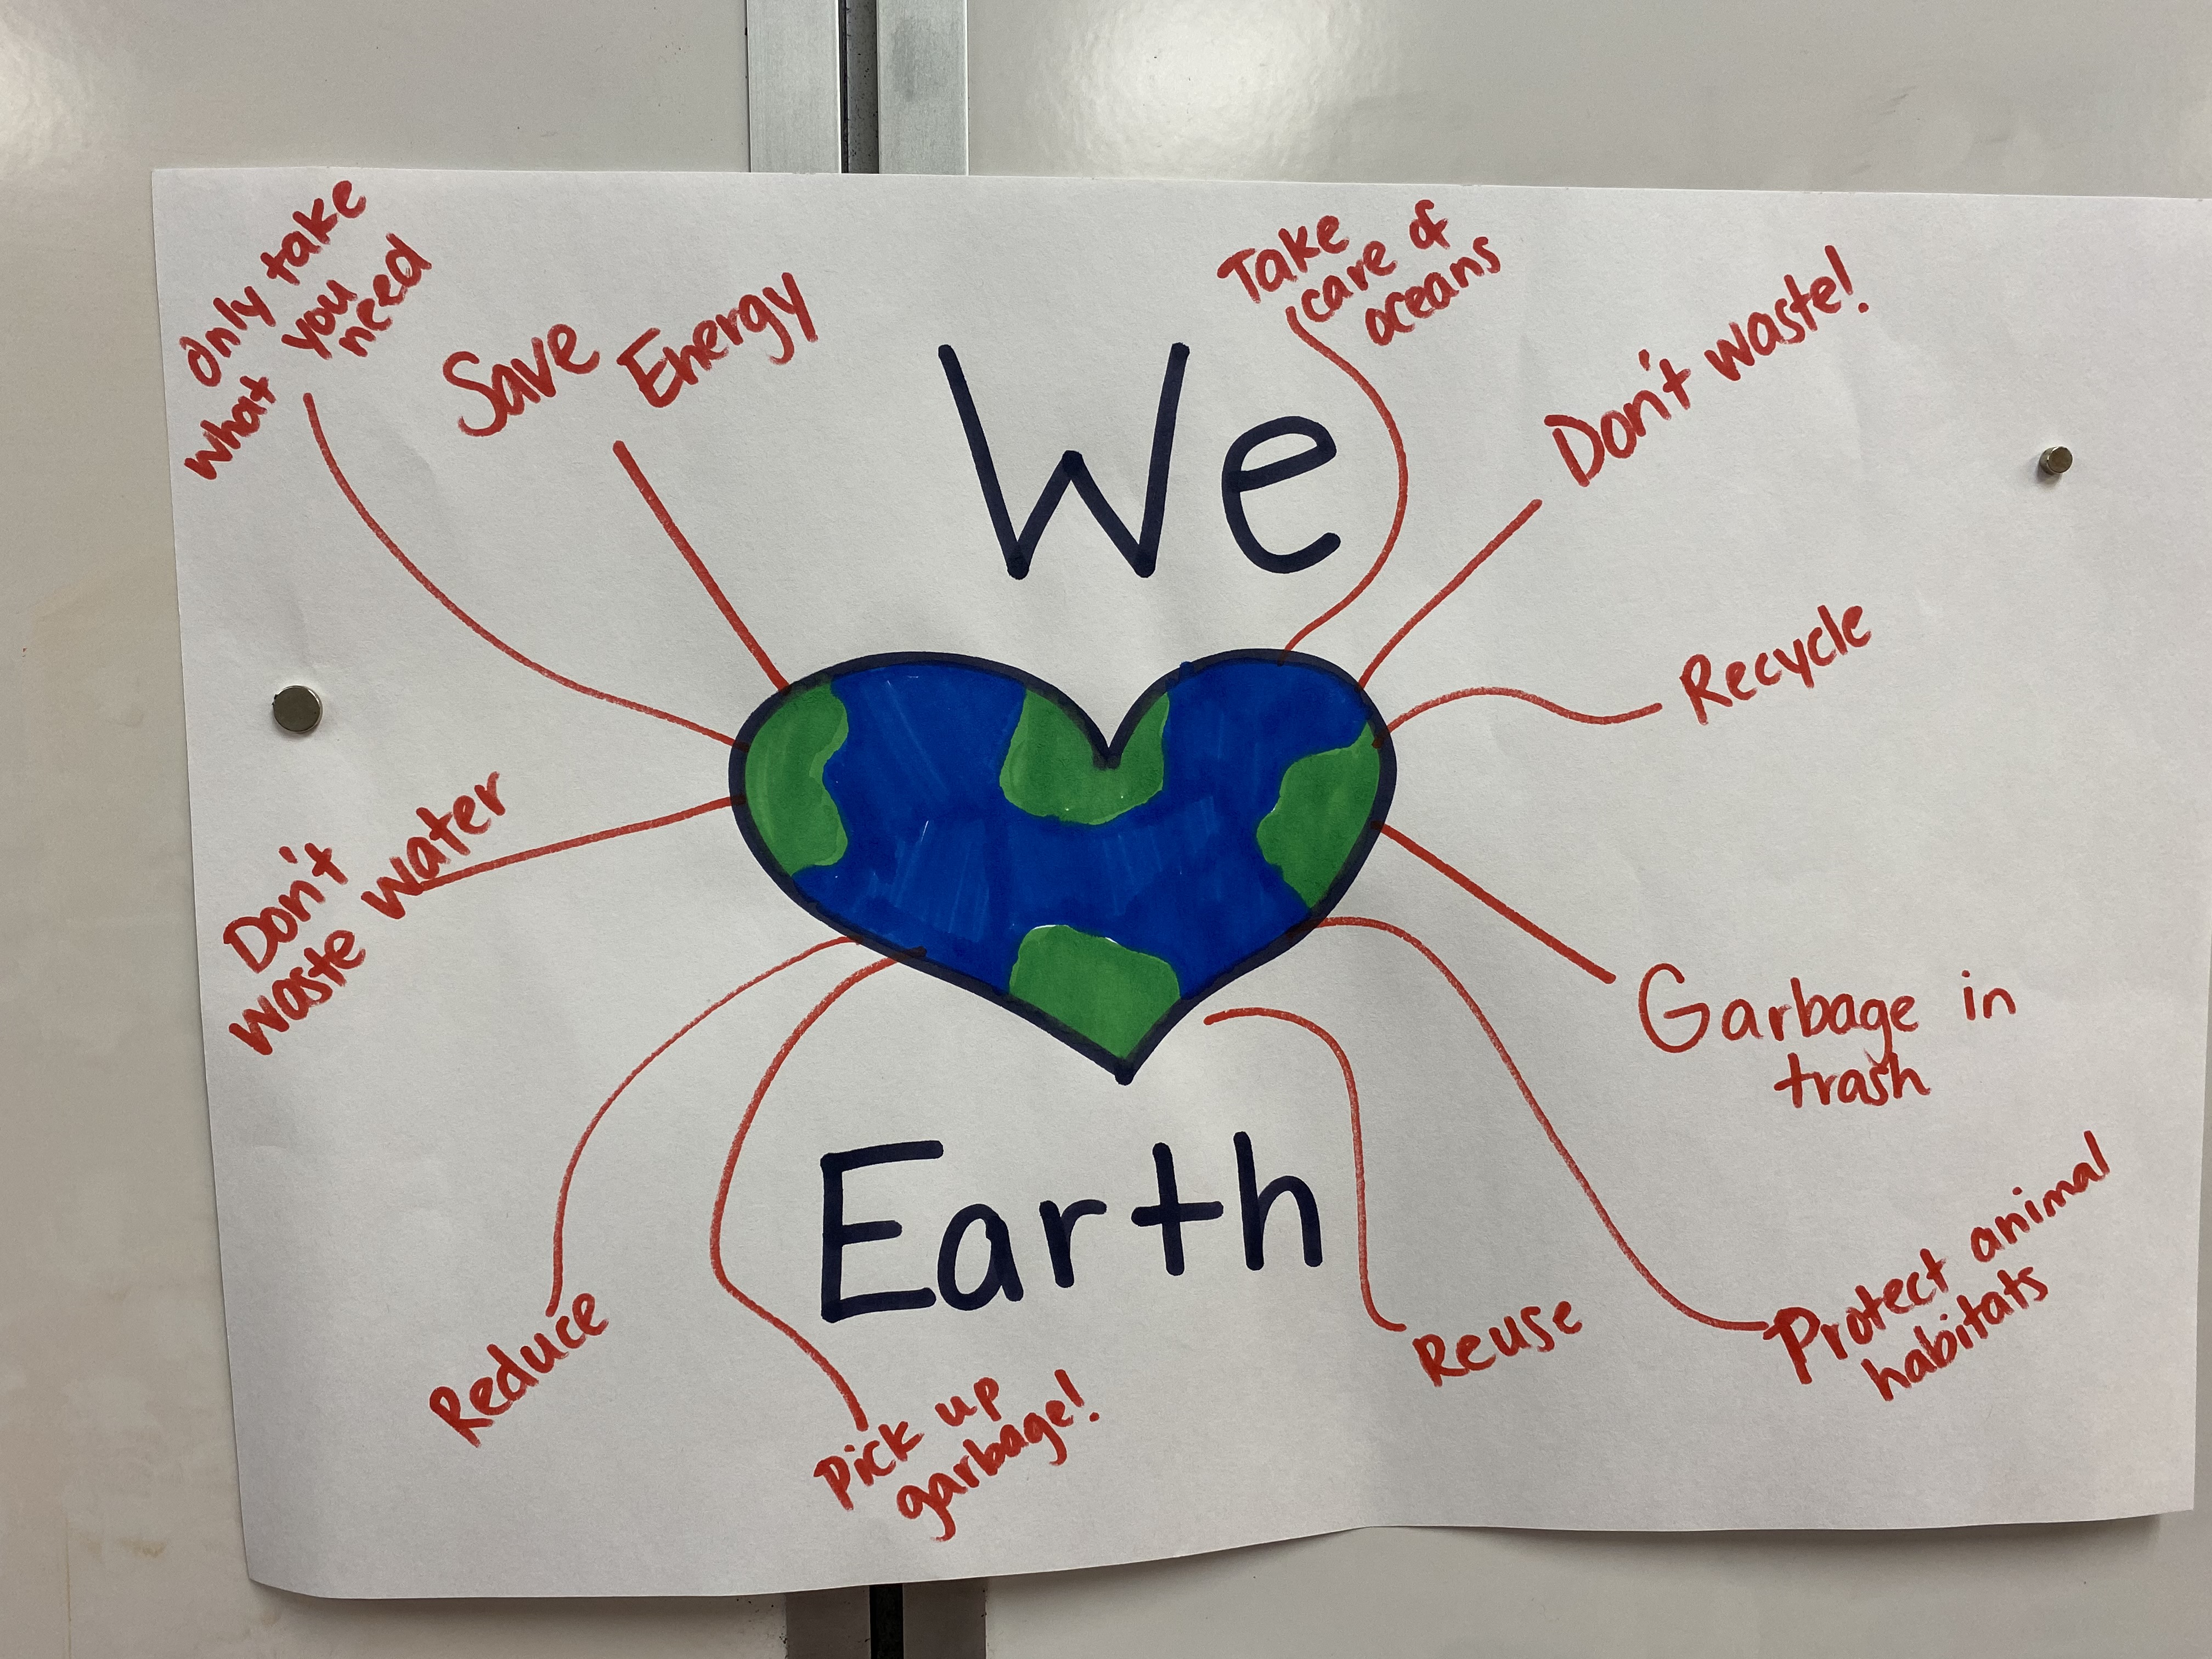 We
Earth
Only take
what you
need
Save Energy
Take
care of
oceans
Don't waste!
Recycle
Garbage in
trash
Protect animal
habitats
Reuse
Pick up
garbage!
Reduce
Don't
waste water